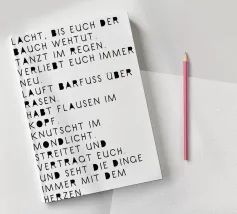 LACHT, BIS EUCH DER
BAUCH WEHTUT.
TANZT IM REGEN.
VERLIEBT EUCH IMMER
NEU.
LAUFT BARFUSS ÜBER
RASEN.
HABT FLAUSEN IM
KOPF.
KNUTSCHT IM
MONDLICHT.
STREITET UND
VERTRAGT EUCH.
UND SEHT DIE DINGE
IMMER MIT DEM
HERZEN.